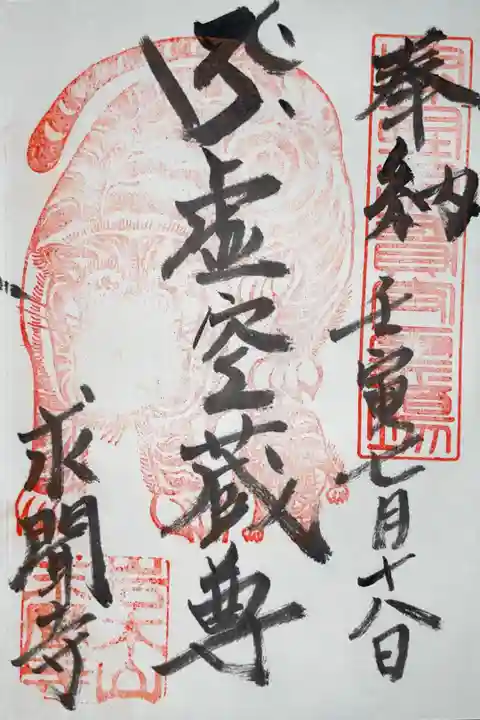 奉納 壬寅七月十八日
虚空蔵尊
求聞寺